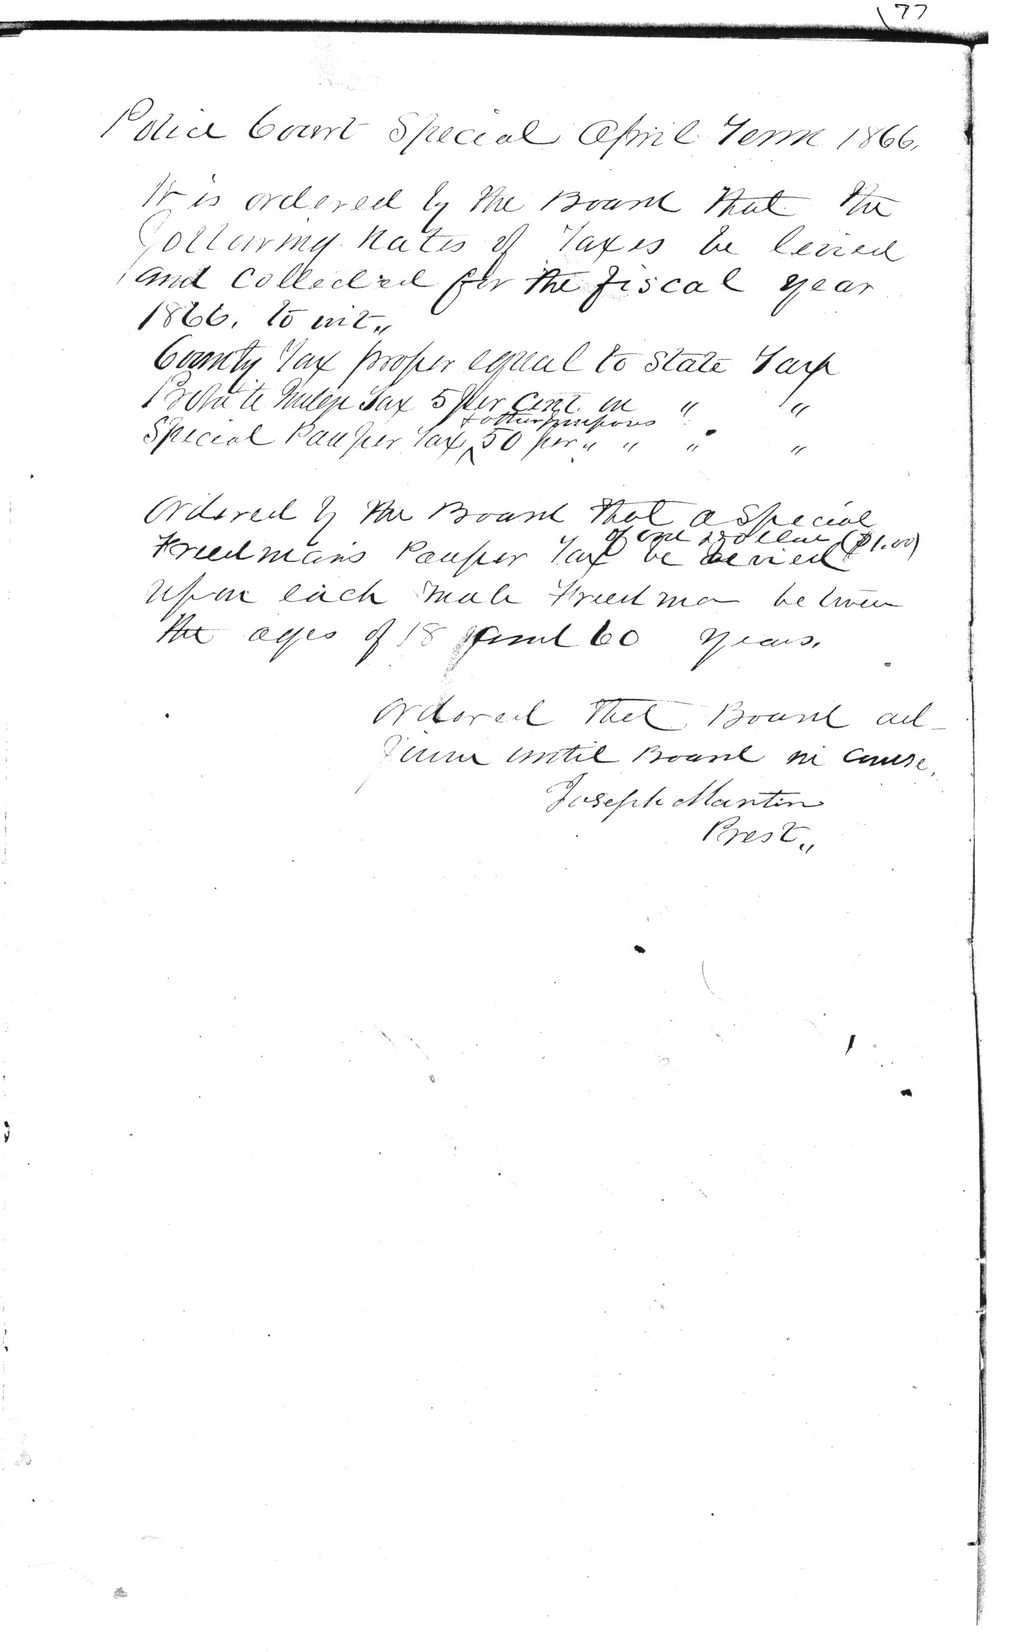 77
Police Court Special April Term 1866.
It is ordered by the Board that the
following Rates of Taxes be levied
and collected for the fiscal year
1866. to wit,,
County Tax proper equal to State Tax
Probate Judge Tax 5 per Cent on " "
& other purposes
Special Pauper Tax ^ 50 per " " " "
Ordered by the Board that a Special
of one Dollar ($1.00)
Freedman's Pauper Tax be levied
upon each male Freedman between
the ages of 18 and 60 years.
Ordered that Board ad-
journ until Board in course.
Joseph Martin
Prest,,